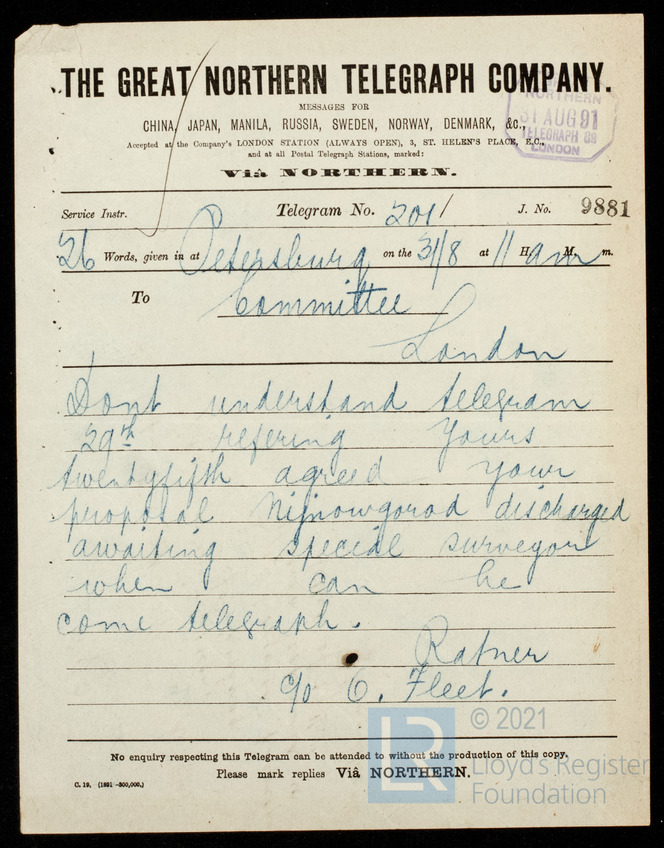 THE GREAT NORTHERN TELEGRAPH COMPANY.
MESSAGES FOR
CHINA, JAPAN, MANILA, RUSSIA, SWEDEN, NORWAY, DENMARK, &c.,
Accepted at the Company's LONDON STATION (ALWAYS OPEN), 3, ST. HELEN'S PLACE, E.C.,
and at all Postal Telegraph Stations, marked:
Viâ NORTHERN.
NORTHERN
31 AUG 91
TELEGRAPH Co
LONDON
Service Instr. Telegram No. 201 J. No. 9881
26 Words, given in at Petersburg on the 31/8 at 11 H. am M. m.
To Committee
London
Dont understand telegram
29th refering yours
twentyfifth agreed your
proposal Nijnowgorod discharged
awaiting special surveyor
when can he
come telegraph.
Ratner
c/o O. Fleet.
No enquiry respecting this Telegram can be attended to without the production of this copy.
Please mark replies Viâ NORTHERN.
C. 19. (1891 -300,000.)
LR
© 2021
Lloyd's Register
Foundation